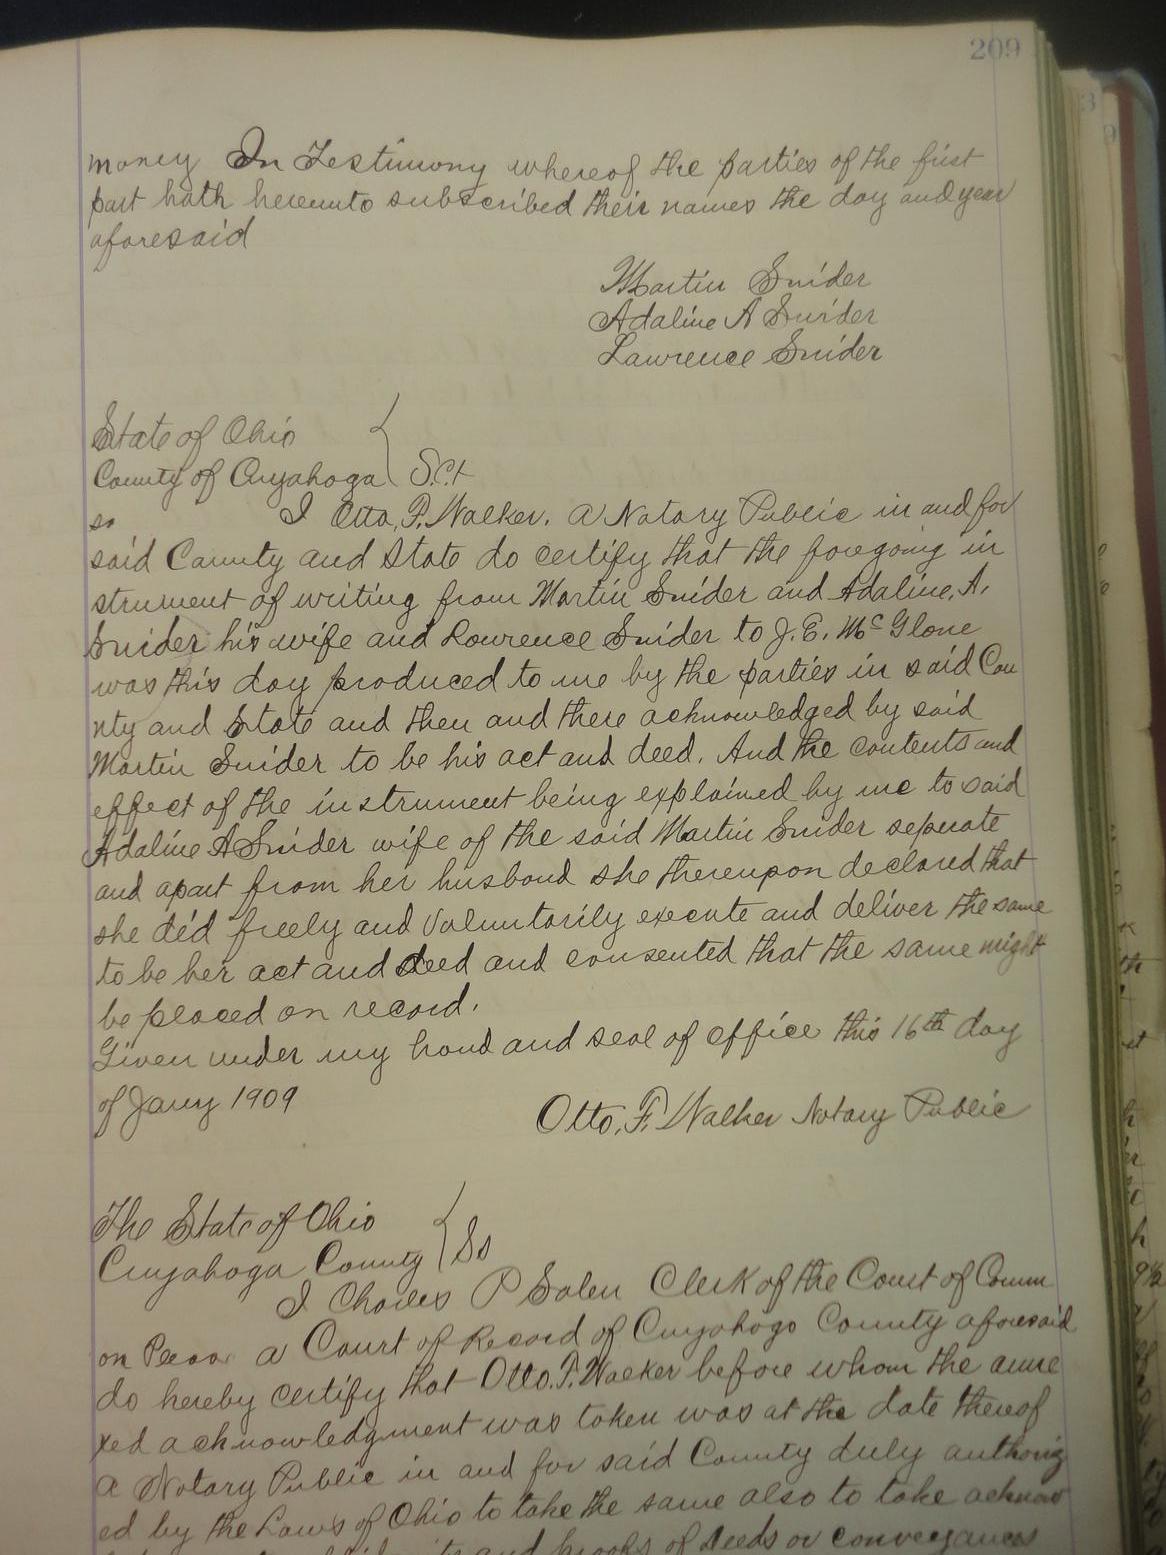 209
money In Testimony whereof the parties of the first
part hath hereunto subscribed their names the day and year
aforesaid
Martin Snider
Adaline A Snider
Lawrence Snider
State of Ohio
County of Cuyahoga } S.Ct
ss I Otto, F. Walker. a Notary Public in and for
said County and State do certify that the foregoing in
strument of writing from Martin Snider and Adaline, A.
Snider his wife and Lawrence Snider to J. E. McGlone
was this day produced to me by the parties in said Cou
nty and State and then and there acknowledged by said
Martin Snider to be his act and deed. And the contents and
effect of the instrument being explained by me to said
Adaline A Snider wife of the said Martin Snider seperate
and apart from her husband she thereupon declared that
she did freely and voluntarily execute and deliver the same
to be her act and deed and consented that the same might
be placed on record.
Given under my hand and seal of office this 16th day
of Jany 1909
Otto, F. Walker Notary Public
The State of Ohio
Cuyahoga County } Ss
I Charles P Salen Clerk of the Court of Comm
on Pleas a Court of Record of Cuyahoga County aforesaid
do hereby certify that Otto. F. Walker before whom the anne
xed acknowledgment was taken was at the date thereof
a Notary Public in and for said County duly authoriz
ed by the Laws of Ohio to take the same also to take acknow
and proofs of deeds or conveyances